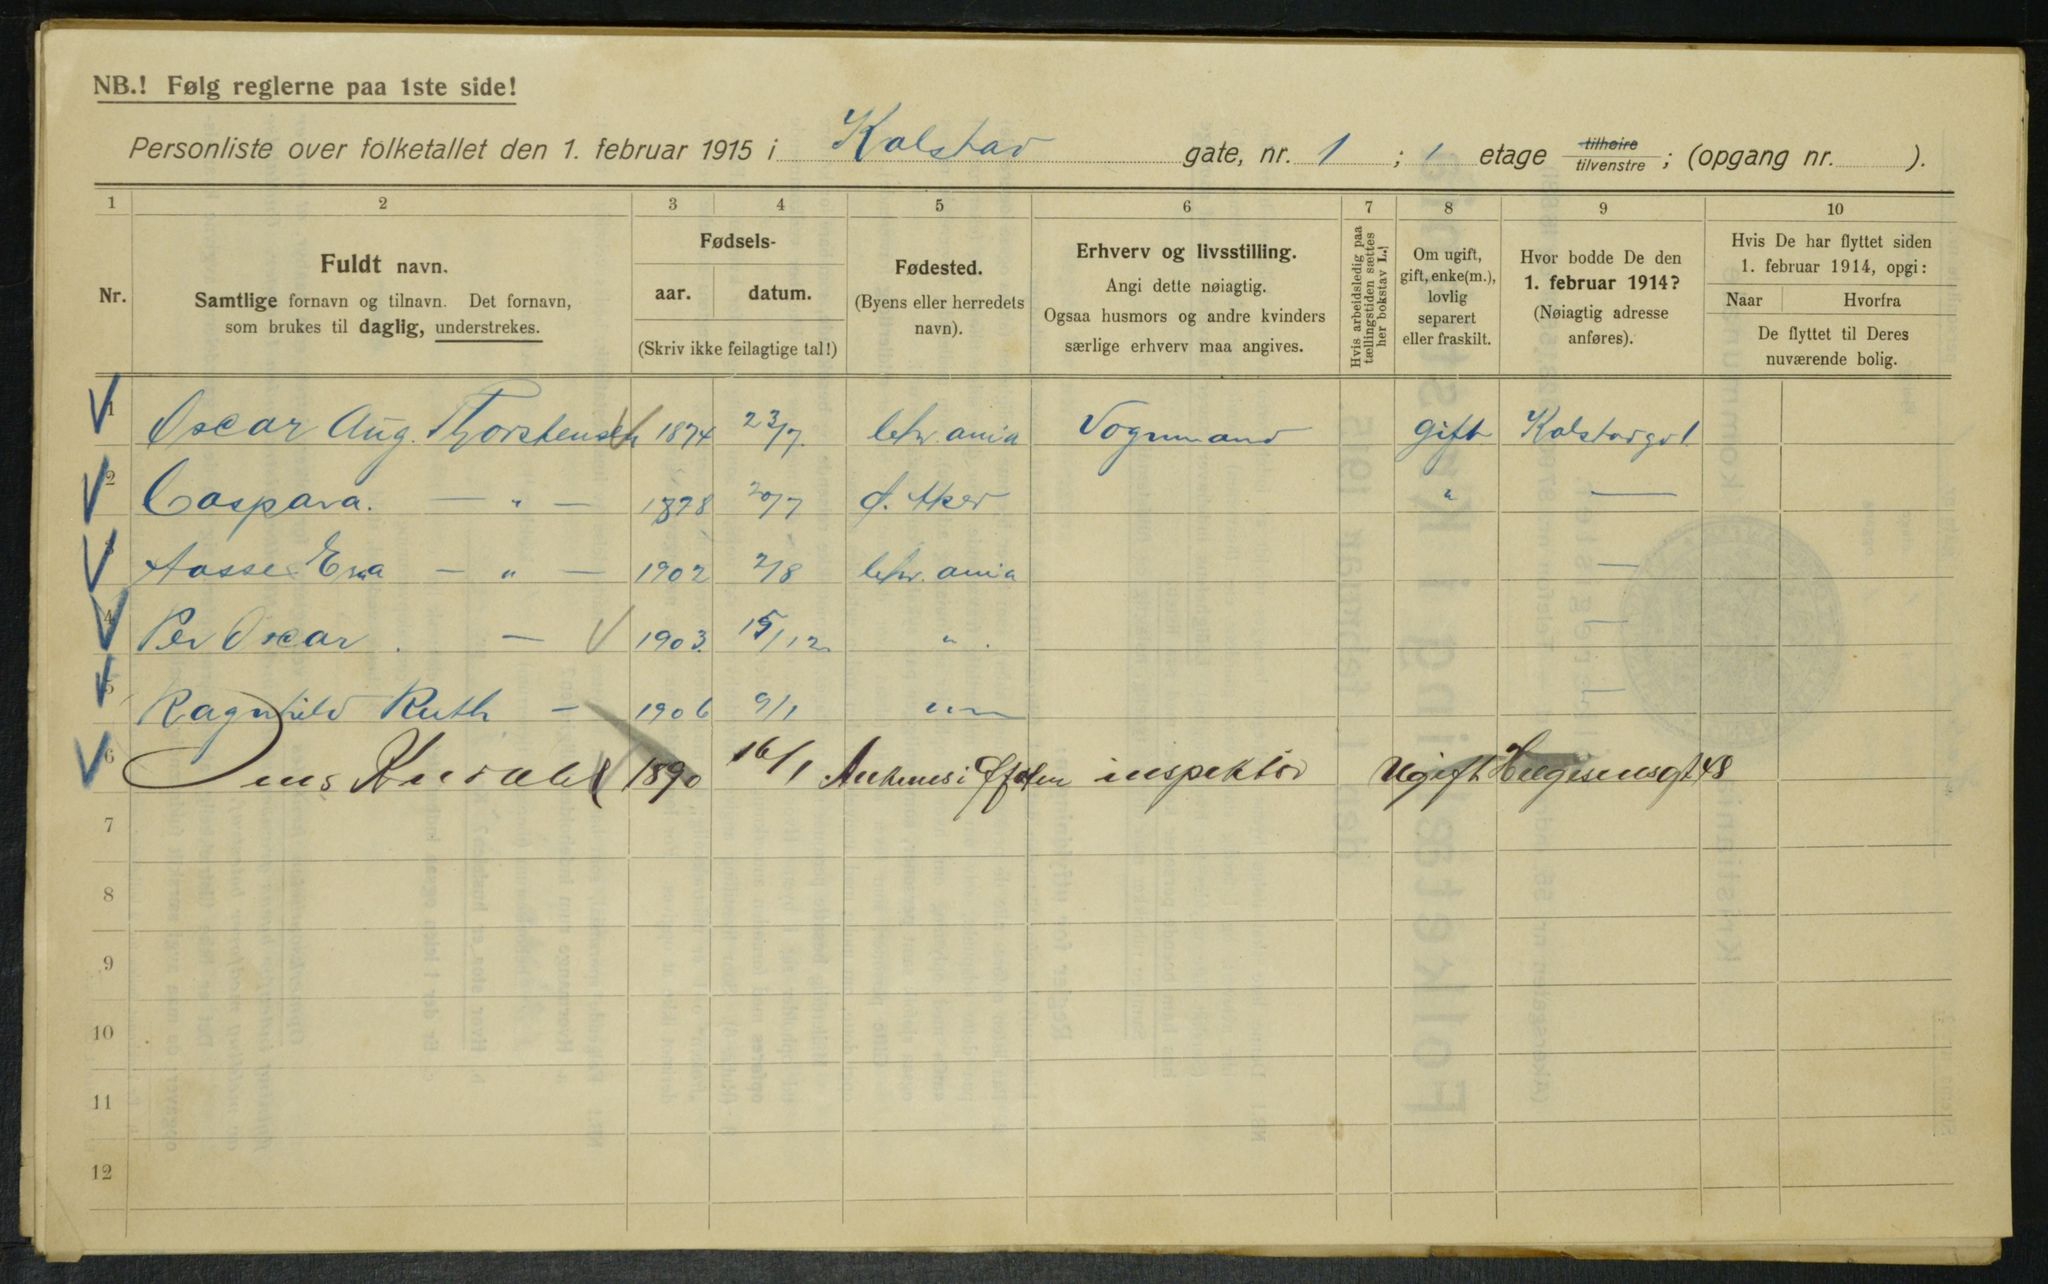 NB.! Følg reglerne paa 1ste side!
Personliste over folketallet den 1. februar 1915 i Kalstad gate, nr. 1 ; 1 etage tilhøire tilvenstre ; (opgang nr. ).
1 2 3 4 5 6 7 8 9 10
Nr.
Fuldt navn.
Samtlige fornavn og tilnavn. Det fornavn,
som brukes til daglig, understrekes.
Fødsels-
aar. datum.
(Skriv ikke feilagtige tal!)
Fødested.
(Byens eller herredets
navn).
Erhverv og livsstilling.
Angi dette nøiagtig.
Ogsaa husmors og andre kvinders
særlige erhverv maa angives.
Hvis arbeidsledig paa
tællingstiden sættes
her bokstav L.!
Om ugift,
gift, enke(m.),
lovlig
separert
eller fraskilt.
Hvor bodde De den
1. februar 1914?
(Nøiagtig adresse
anføres).
Hvis De har flyttet siden
1. februar 1914, opgi:
Naar Hvorfra
De flyttet til Deres
nuværende bolig.
1 Oscar Aug. Thorstensen 1874 23/7 Chr. ania Vognmand gift Kalstadgt 1
2 Caspara. — " — 1878 20/7 Ø. Aker " —
3 Aasse Erna — " — 1902 2/8 Chr. ania —
4 Per Oscar . — 1903. 15/12 " . —
5 Ragnhild Ruth — 1906 9/1 —
6 Jens 1890 16/1 inspektør Ugift Helgesensgt 48
7
8
9
10
11
12